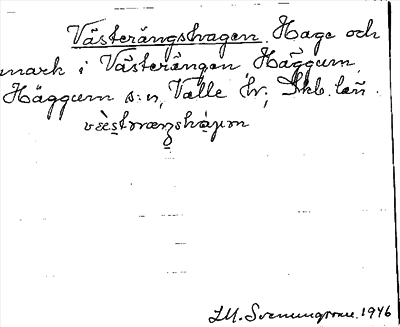 Västerängshagen. Hage och
mark i Västerängen Häggum,
Häggum s:n, Valle hr; Skb. län.
I.M. Svenungsson. 1946